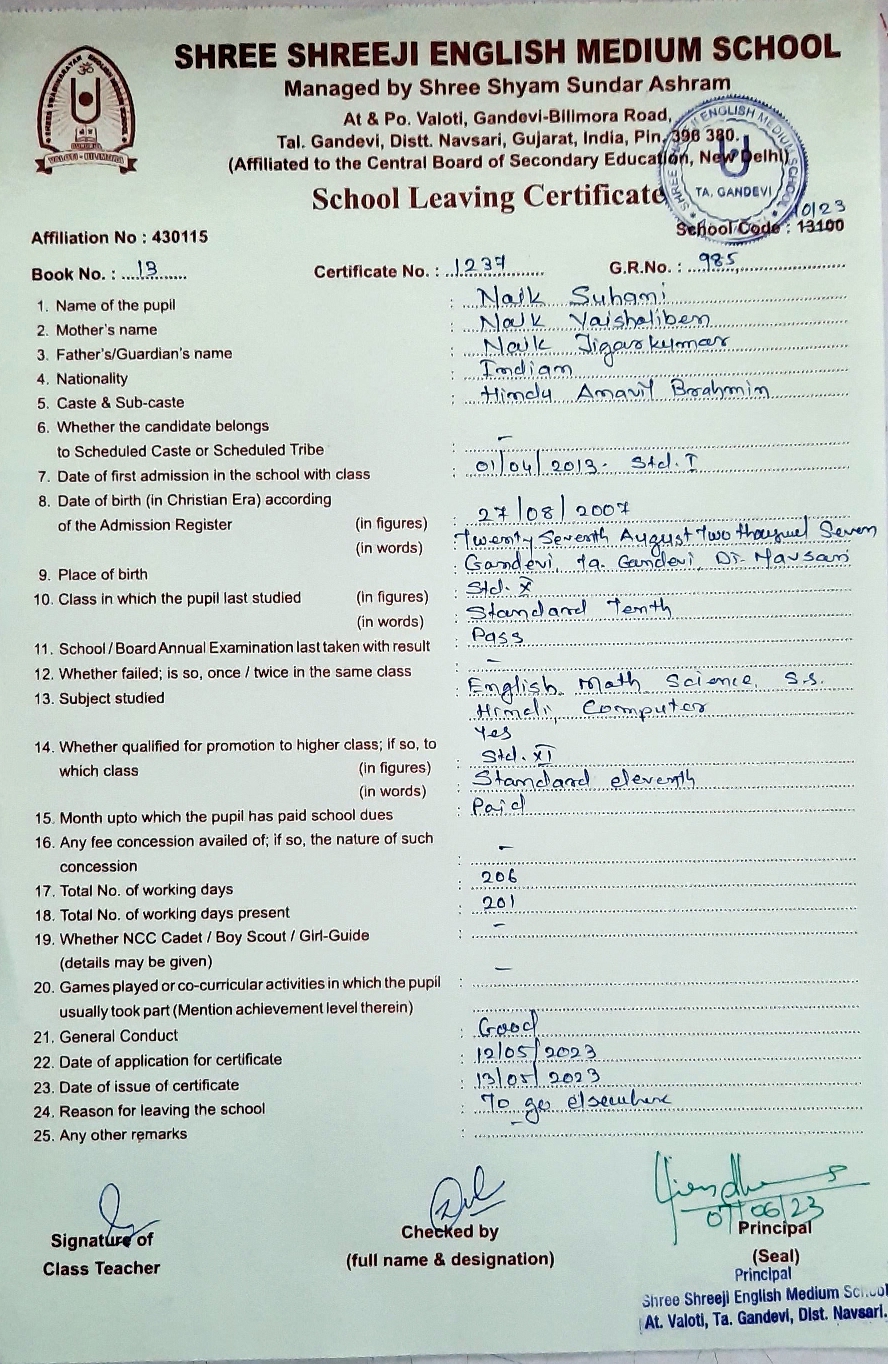 SHREE SHREEJI ENGLISH MEDIUM SCHOOL
Managed by Shree Shyam Sundar Ashram
At & Po. Valoti, Gandevi-Bilimora Road,
Tal. Gandevi, Distt. Navsari, Gujarat, India, Pin. 396 380.
(Affiliated to the Central Board of Secondary Education, New Delhi)
VALOTI - BILIMORA
ENGLISH MEDIUM SCHOOL
TA. GANDEVI
School Leaving Certificate
10/23
Affiliation No : 430115 School Code : 13100
Book No. : 13 Certificate No. : 1237 G.R.No. : 985
1. Name of the pupil : Naik Suhani
2. Mother's name : Naik Vaishaliben
3. Father's/Guardian's name : Naik Jigarkumar
4. Nationality : Indian
5. Caste & Sub-caste : Hindu Anavil Brahmin
6. Whether the candidate belongs
to Scheduled Caste or Scheduled Tribe : -
7. Date of first admission in the school with class : 01/04/2013. Std. I
8. Date of birth (in Christian Era) according
of the Admission Register (in figures) : 27/08/2007
(in words) : Twenty Seventh August Two thousand Seven
9. Place of birth : Gandevi, Ta. Gandevi, Di- Navsari
10. Class in which the pupil last studied (in figures) : Std. X
(in words) : Standard Tenth
11. School / Board Annual Examination last taken with result : Pass
12. Whether failed; is so, once / twice in the same class : -
13. Subject studied : English, Math, Science, S.S.
: Hindi, Computer
14. Whether qualified for promotion to higher class; if so, to : Yes
which class (in figures) : Std. XI
(in words) : Standard eleventh
15. Month upto which the pupil has paid school dues : Paid
16. Any fee concession availed of; if so, the nature of such
concession : -
17. Total No. of working days : 206
18. Total No. of working days present : 201
19. Whether NCC Cadet / Boy Scout / Girl-Guide : -
(details may be given)
20. Games played or co-curricular activities in which the pupil : -
usually took part (Mention achievement level therein)
21. General Conduct : Good
22. Date of application for certificate : 12/05/2023
23. Date of issue of certificate : 13/05/2023
24. Reason for leaving the school : To go elsewhere
25. Any other remarks : -
07/06/23
Signature of
Class Teacher
Checked by
(full name & designation)
Principal
(Seal)
Principal
Shree Shreeji English Medium School
At. Valoti, Ta. Gandevi, Dist. Navsari.